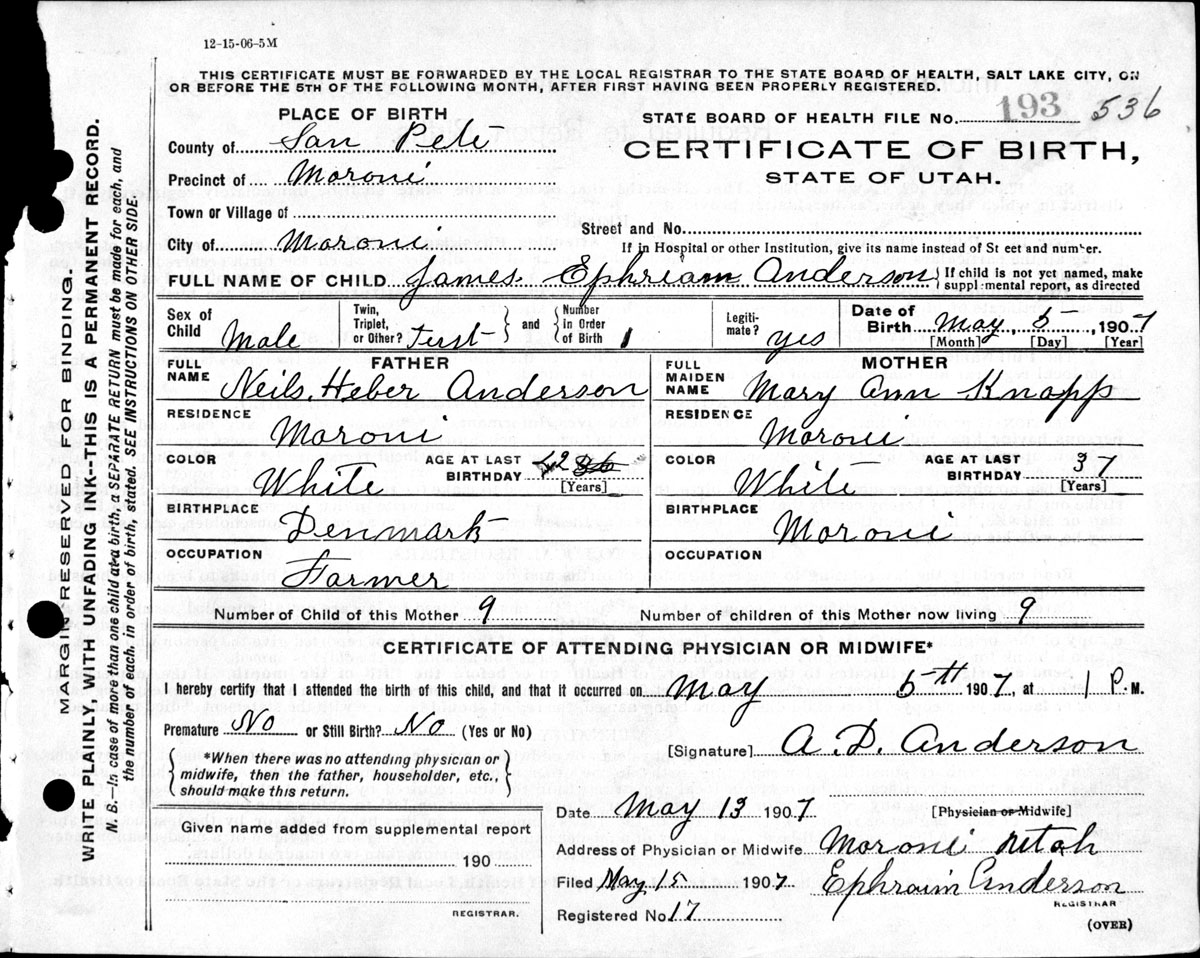 12-15-06-5M
THIS CERTIFICATE MUST BE FORWARDED BY THE LOCAL REGISTRAR TO THE STATE BOARD OF HEALTH, SALT LAKE CITY, ON
OR BEFORE THE 5TH OF THE FOLLOWING MONTH, AFTER FIRST HAVING BEEN PROPERLY REGISTERED.
PLACE OF BIRTH
STATE BOARD OF HEALTH FILE No. 193 536
County of San Pete
CERTIFICATE OF BIRTH,
Precinct of Moroni
STATE OF UTAH.
Town or Village of
Street and No.
City of Moroni
If in Hospital or other Institution, give its name instead of St eet and number.
FULL NAME OF CHILD James Ephriam Anderson } If child is not yet named, make
supplemental report, as directed
Sex of Child Male
Twin, Triplet, or Other? First } and { Number in Order of Birth 1
Legiti-mate? yes
Date of Birth May, 5, 1907
[Month] [Day] [Year]
FATHER
FULL NAME Neils. Heber Anderson
MOTHER
FULL MAIDEN NAME Mary Ann Knapp
RESIDENCE Moroni
RESIDENCE Moroni
COLOR White AGE AT LAST BIRTHDAY 42 [Years]
COLOR White AGE AT LAST BIRTHDAY 37 [Years]
BIRTHPLACE Denmark
BIRTHPLACE Moroni
OCCUPATION Farmer
OCCUPATION
Number of Child of this Mother 9 Number of children of this Mother now living 9
CERTIFICATE OF ATTENDING PHYSICIAN OR MIDWIFE*
I hereby certify that I attended the birth of this child, and that it occurred on May 5th 1907, at 1 P. M.
Premature No or Still Birth? No (Yes or No)
[Signature] A. D. Anderson
{ *When there was no attending physician or
midwife, then the father, householder, etc.,
should make this return. }
Date May 13 1907 [Physician or Midwife]
Given name added from supplemental report
Address of Physician or Midwife Moroni Utah
190
Filed May 15 1907 Ephraim Anderson
REGISTRAR
REGISTRAR.
Registered No 17
(OVER)
MARGIN RESERVED FOR BINDING.
WRITE PLAINLY, WITH UNFADING INK--THIS IS A PERMANENT RECORD.
N. B.—In case of more than one child at a birth, a SEPARATE RETURN must be made for each, and
the number of each, in order of birth, stated. SEE INSTRUCTIONS ON OTHER SIDE.